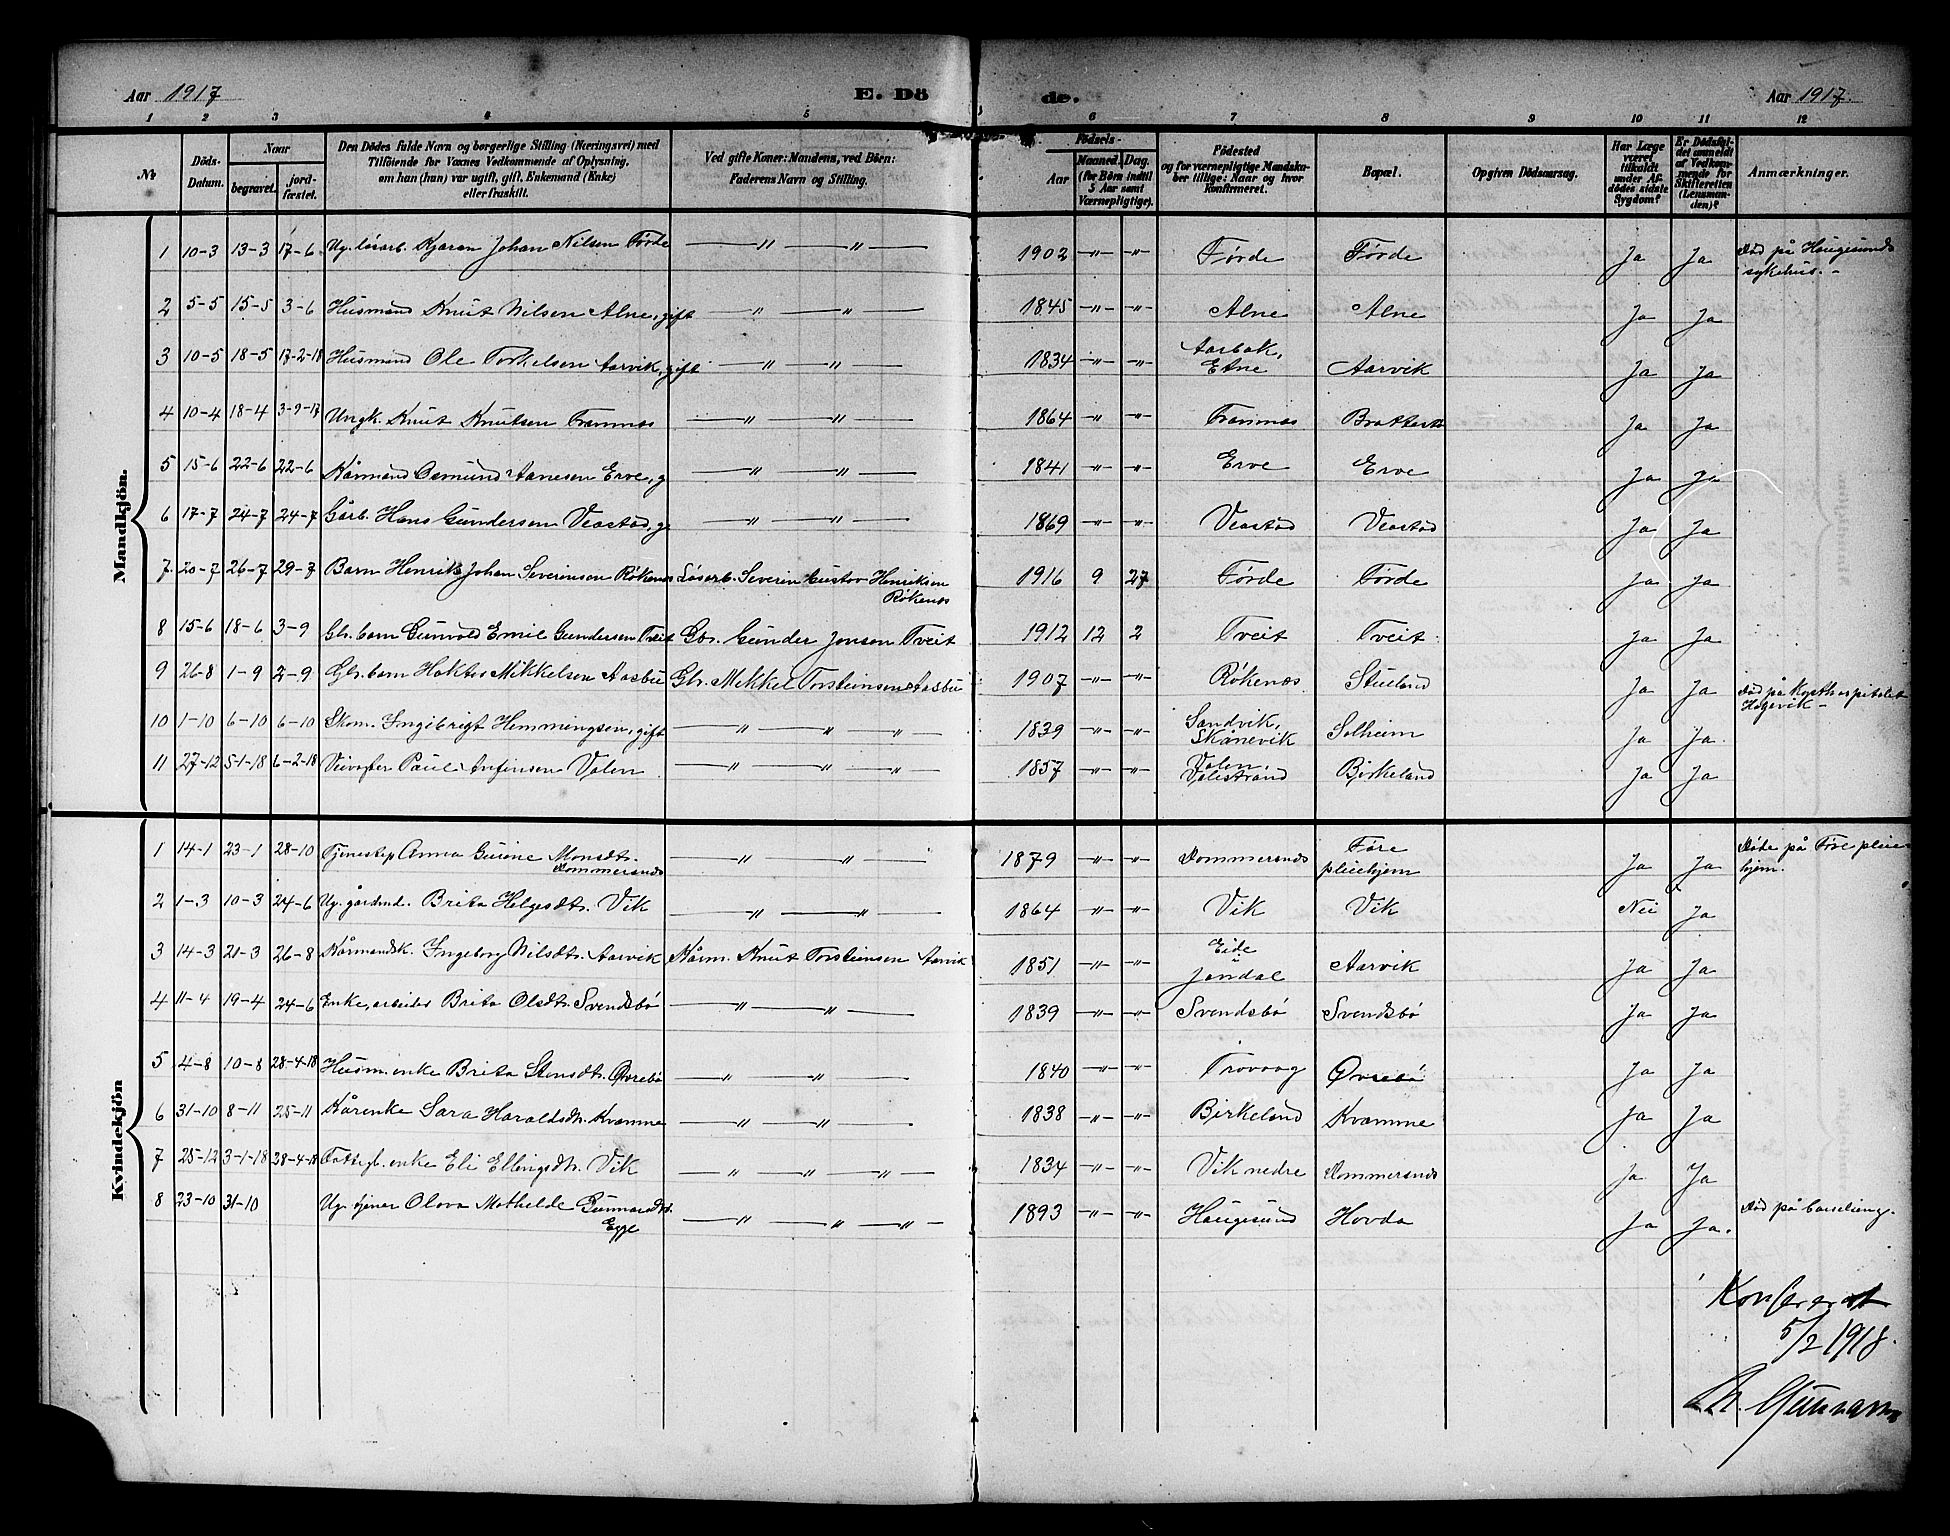 Aar 1917 E. Dö de. Aar 1917.
1 2 3 4 5 6 7 8 9 10 11 12
№ Döds-Datum. Naar begravet. jordfæstet. Den Dödes fulde Navn og borgerlige Stilling (Næringsvei) med Tilföiende for Voxnes Vedkommende af Oplysning, om han (hun) var ugift, gift, Enkemand (Enke) eller fraskilt. Ved gifte Koner: Mandens, ved Börn: Faderens Navn og Stilling. Födsels- Aar Maaned. Dag. (for Börn indtil 5 Aar samt Værnepligtige). Födested og for værnepligtige Mandskaber tillige: Naar og hvor Konfirmeret. Bopæl. Opgiven Dödsaarsag. Har Læge været tilkaldt under Afdödes sidste Sygdom? Er Dödsfaldet anmeldt af Vedkommende for Skifteretten (Lensmanden)? Anmærkninger.
Mandkjön.
1 10-3 13-3 17-6 Ug. løsarb. Kjaran Johan Nilsen Førde —〃—〃— 1902 -〃- -〃- Førde Førde Ja Ja Død på Haugesunds sykehus.-
2 5-5 15-5 3-6 Husmand Knut Nilsen Alne, gift —〃—〃— 1845 -〃- -〃- Alne Alne Ja Ja
3 10-5 18-5 17-2-18 Husmand Ole Torkelsen Aarvik, gift —〃—〃— 1834 -〃- -〃- Aarbak, Etne Aarvik Ja Ja
4 10-4 18-4 3-9-17 Ungk. Knut Knutsen Trannæs —〃—〃— 1864 -〃- -〃- Trannæs Ja Ja
5 15-6 22-6 22-6 Kårmand Osmund Aanesen Erve, g —〃—〃— 1841 -〃- -〃- Erve Erve Ja Ja
6 17-7 24-7 24-7 Gårb. Hans Gundersen Veastad, g —〃—〃— 1869 -〃- -〃- Veastad Veastad Ja Ja
7 20-7 26-7 29-7 Barn Henrik Johan Severinsen Røkenes Løsarb. Severin Gustav Henriksen Røkenes 1916 9 27 Førde Førde Ja Ja
8 15-6 18-6 3-9 Gbr. barn Gunvald Emil Gundersen Tveit Gbr. Gunder Jonsen Tveit 1912 12 2 Tveit Tveit Ja Ja
9 26-8 1-9 2-9 Gbr. barn Mikkelsen Aasbu Gbr. Mikkel Torsteinsen Aasbu 1907 -〃- -〃- Røkenæs Stueland Ja Ja Død på Kysthospitalet Hagevik-
10 1-10 6-10 6-10 Skom. Ingebrigt Hemmingsen, gift —〃—〃—〃— 1839 -〃- -〃- Sandvik, Skånevik Solheim Ja Ja
11 27-12 5-1-18 6-2-18 Paul Anfinsen Valen —〃—〃—〃— 1857 -〃- -〃- Valen, Valestrand Birkeland Ja Ja
Kvindekjön
1 14-1 23-1 28-10 Tjenestep Anna Gurine Monsdt. Dommersnes —〃—〃— 1879 -〃- -〃- Dommersnes Føre pleiehjem Ja Ja Døde på Føre pleiehjem.
2 1-3 10-3 24-6 Ug. gårdmd. Brita Helgesdt. Vik —〃—〃— 1864 -〃- -〃- Vik Vik Nei Ja
3 14-3 21-3 26-8 Kårmandsk. Ingeborg Nilsdt. Aarvik Kårm. Knut Torsteinsen Aarvik 1851 -〃- -〃- Eide i Jondal Aarvik Ja Ja
4 11-4 19-4 24-6 Enke, arbeider Brita Olsdt. Svendsbö —〃—〃— 1839 -〃- -〃- Svendsbö Svendsbö Ja Ja
5 4-8 10-8 28-4-18 Husm. enke Brita Stensdt. Øvrebö —〃—〃— 1840 -〃- -〃- Trovaag Øvrebö Ja Ja
6 31-10 8-11 25-11 Kårenke Sara Haraldsdt. Kvamme —〃—〃— 1838 -〃- -〃- Birkeland Kvamme Ja Ja
7 25-12 3-1-18 28-4-18 Fattigl. enke Eli Ellingsdt. Vik —〃—〃—〃— 1834 -〃- -〃- Vik nedre Dommersnes Ja Ja
8 23-10 31-10 Ug. tjener Olava Mathilde Gunnarsdt. Egge —〃—〃—〃— 1893 -〃- -〃- Haugesund Hovda Ja Ja. Død på barselseng.
Konfereret
5/2 1918.